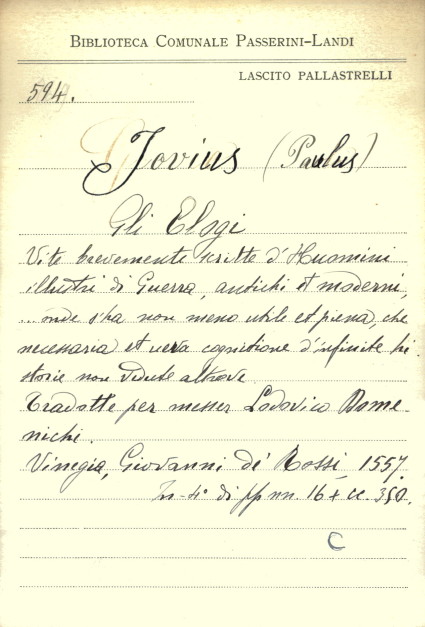 BIBLIOTECA COMUNALE PASSERINI-LANDI
LASCITO PALLASTRELLI
594.
Jovius (Paulus)
Gli Elogi
Vite brevemente scritte d'Huomini
illustri di Guerra, antichi et moderni,
...onde s'ha non meno utile et piena, che
necessaria et vera cognitione d'infinite hi-
storie non vedute altrove
Tradotte per messer Lodovico Dome-
nichi.
Vinegia, Giovanni de' Rossi, 1557.
In-4° di pp nn. 16 + cc. 350.
C